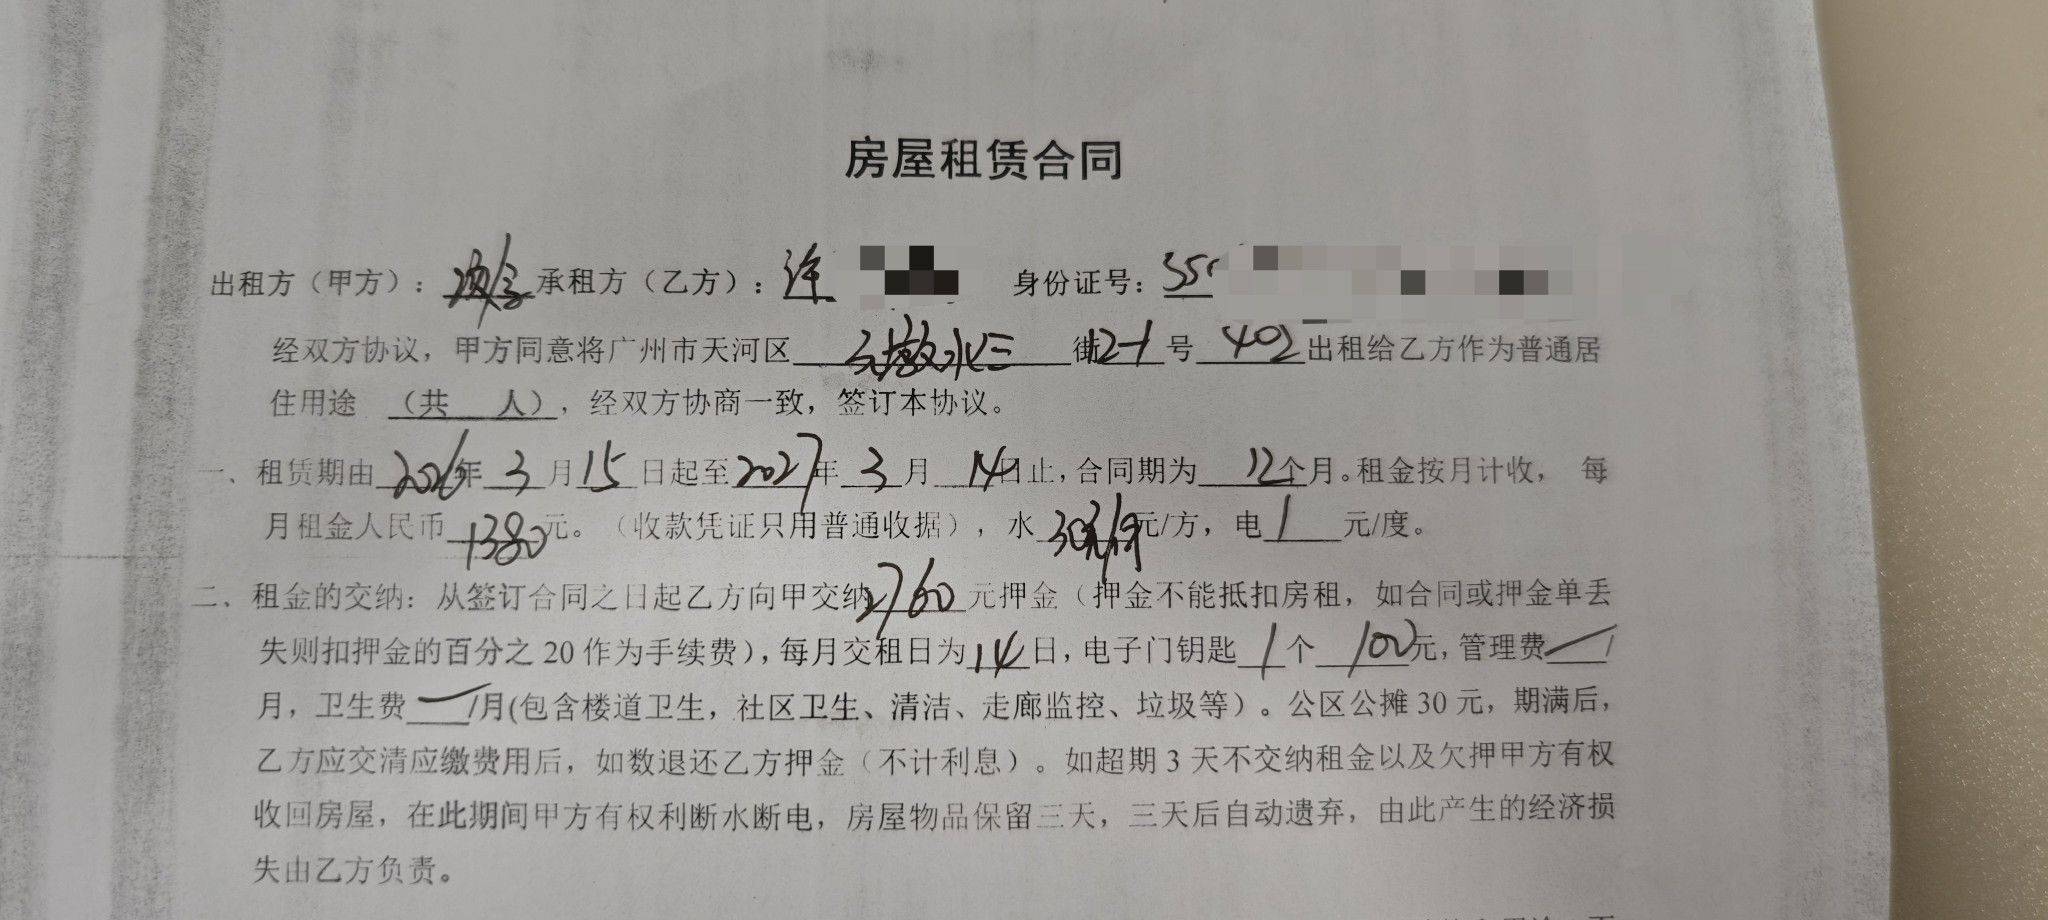 房屋租赁合同
出租方（甲方）：承租方（乙方）：徐 身份证号：35
经双方协议，甲方同意将广州市天河区 水三 街12-1号 402 出租给乙方作为普通居
住用途 （共 人），经双方协商一致，签订本协议。
一、租赁期由2026年3月15日起至2027年3月14日止，合同期为12个月。租金按月计收， 每
月租金人民币1380元。（收款凭证只用普通收据），水30元/方，电1元/度。
二、租金的交纳：从签订合同之日起乙方向甲交纳2760元押金（押金不能抵扣房租，如合同或押金单丢
失则扣押金的百分之20作为手续费），每月交租日为14日，电子门钥匙1个100元，管理费 /
月，卫生费 /月(包含楼道卫生，社区卫生、清洁、走廊监控、垃圾等）。公区公摊30元，期满后，
乙方应交清应缴费用后，如数退还乙方押金（不计利息）。如超期3天不交纳租金以及欠押甲方有权
收回房屋，在此期间甲方有权利断水断电，房屋物品保留三天，三天后自动遗弃，由此产生的经济损
失由乙方负责。